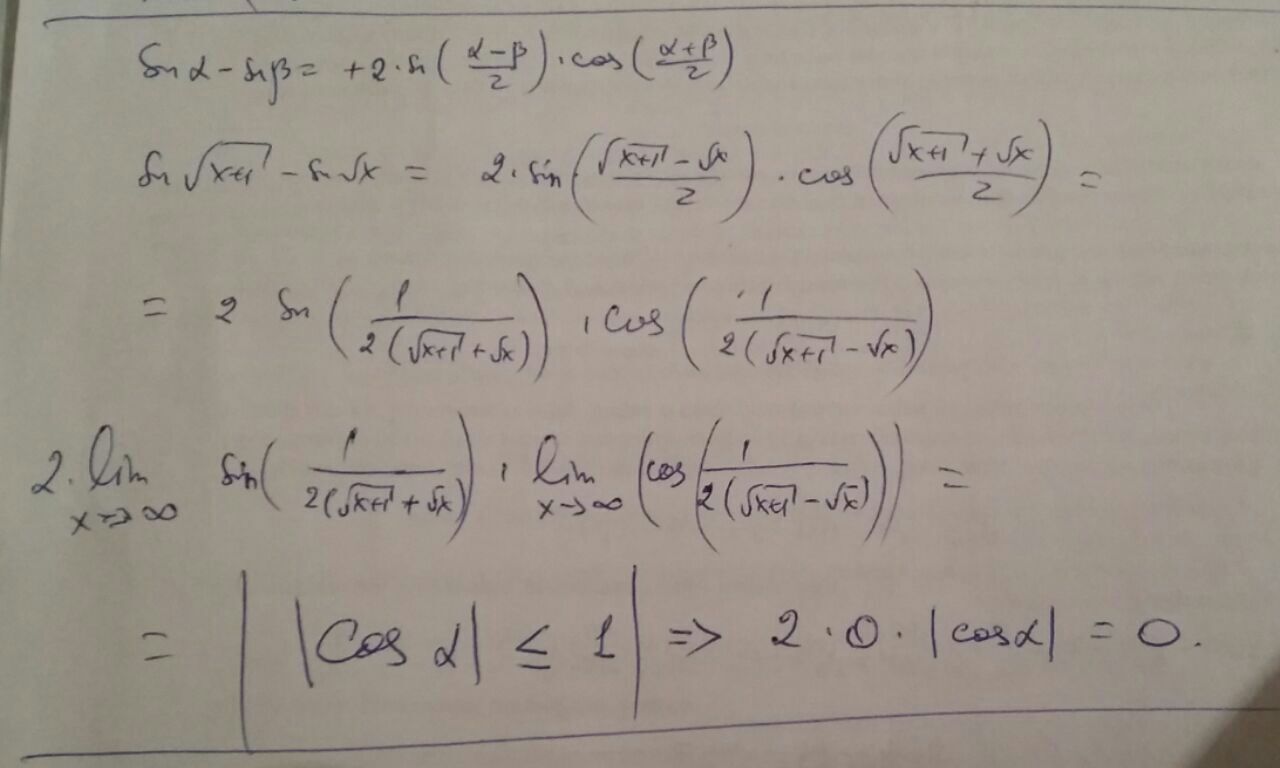 sin α - sin β = +2·sin((α-β)/2)·cos((α+β)/2)
sin √(x+1) - sin √x = 2·sin((√(x+1) - √x)/2)·cos((√(x+1) + √x)/2) =
= 2 sin(1/(2(√(x+1) + √x)))·cos(1/(2(√(x+1) - √x)))
2·lim x→∞ sin(1/(2(√(x+1) + √x)))·lim x→∞ (cos(1/(2(√(x+1) - √x)))) =
= | |cos α| ≤ 1 | => 2·0·|cos α| = 0.